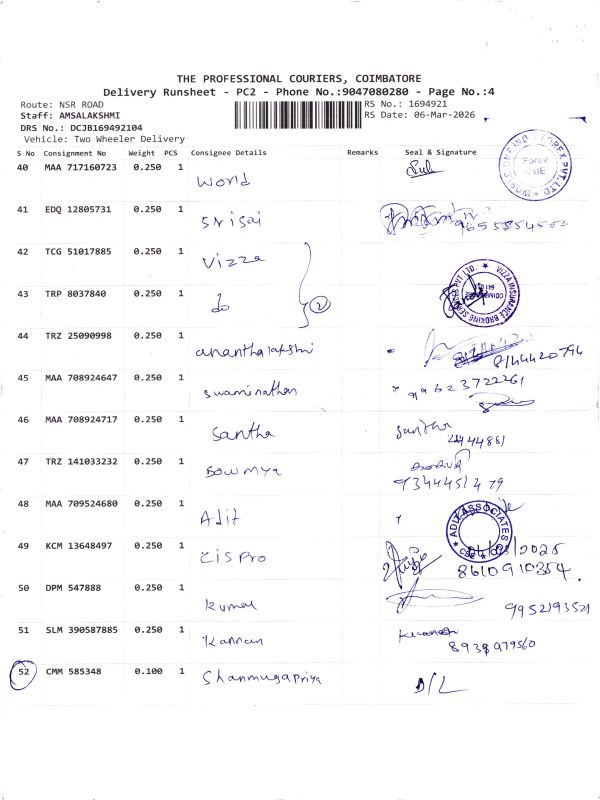 THE PROFESSIONAL COURIERS, COIMBATORE
Delivery Runsheet - PC2 - Phone No.:9047080280 - Page No.:4
Route: NSR ROAD
RS No.: 1694921
Staff: AMSALAKSHMI
RS Date: 06-Mar-2026
DRS No.: DCJB169492104
Vehicle: Two Wheeler Delivery
S No Consignment No Weight PCS Consignee Details Remarks Seal & Signature
40 MAA 717160723 0.250 1 World
Forex CBE
41 EDQ 12805731 0.250 1 Srisai
42 TCG 51017885 0.250 1 Vizza
VIZZA INSURANCE BROKING SERVICES PVT LTD. COIMBATORE
43 TRP 8037840 0.250 1 do 2
44 TRZ 25090998 0.250 1 anantha lakshmi 8144420794
45 MAA 708924647 0.250 1 Swaminathan 9623722261
46 MAA 708924717 0.250 1 Santha Santha
2444861
47 TRZ 141033232 0.250 1 Bowmya
9344451479
48 MAA 709524680 0.250 1 Adit
ADIT ASSOCIATES CBE
49 KCM 13648497 0.250 1 Cispro
8610910354
50 DPM 547888 0.250 1 Kumal 9952193521
51 SLM 390587885 0.250 1 Kannan
8938979560
52 CMM 585348 0.100 1 Shanmugapriya D/L